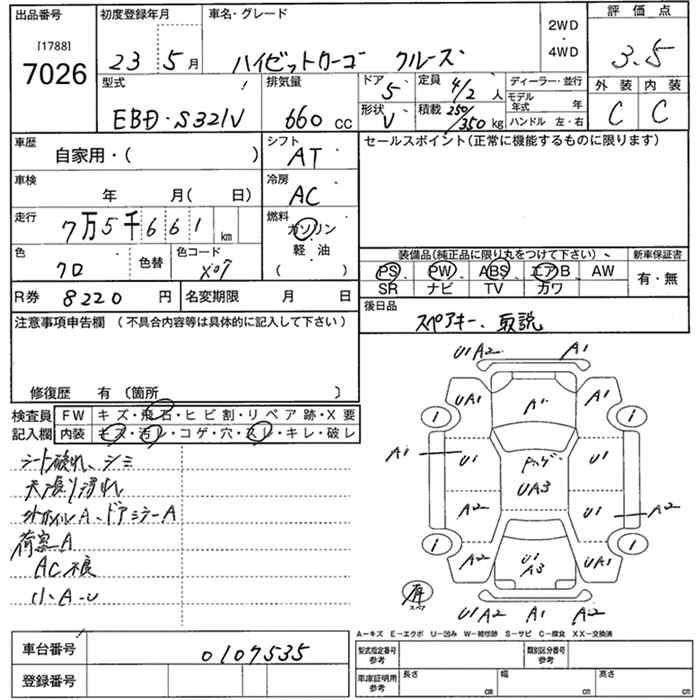 出品番号 初度登録年月 車名・グレード 評価点
[1788] 2WD
7026 23 5月 ハイゼットカーゴ クルーズ ・4WD 3.5
型式 排気量 ドア 5 定員 4/2人 ディーラー・並行 外装 内装
EBD・S321V 660cc 形状 V 積載 250/350kg モデル年式 年 C C
ハンドル 左・右
車歴 シフト セールスポイント(正常に機能するものに限ります)
自家用・( ) AT
車検 冷房
年 月( 日) AC
走行 燃料
7万5千661km ガソリン
軽油
( )
色 色替 色コード
クロ X07
装備品(純正品に限り丸をつけて下さい) 新車保証書
PS PW ABS エアB AW 有・無
SR ナビ TV カワ
R券 8220円 名変期限 月 日 後日品
スペアキー、取説
注意事項申告欄 (不具合内容等は具体的に記入して下さい)
修復歴 有 (箇所 )
検査員 FW キズ・飛石・ヒビ割・リペア跡・X要
記入欄 内装 キズ・汚レ・コゲ・穴・スレ・キレ・破レ
シート破れ、シミ
天張り汚れ
外ホイルA、ドアミラーA
荷室A
AC不良
小A-U
U1 A2 A1
UA1 A1 A1
1 1
A1 U1 U1
UA3
A2 U1 A2
1 1
A2 U1 A3 UA1
有
スペア
U1A2 A1 A2
A−キズ E−エクボ U−凹み W−補修跡 S−サビ C−腐食 XX−交換済
車台番号 0107535 型式指定番号 参考 類別区分番号 参考
登録番号 車庫証明用 参考 長さ cm 幅 cm 高さ cm